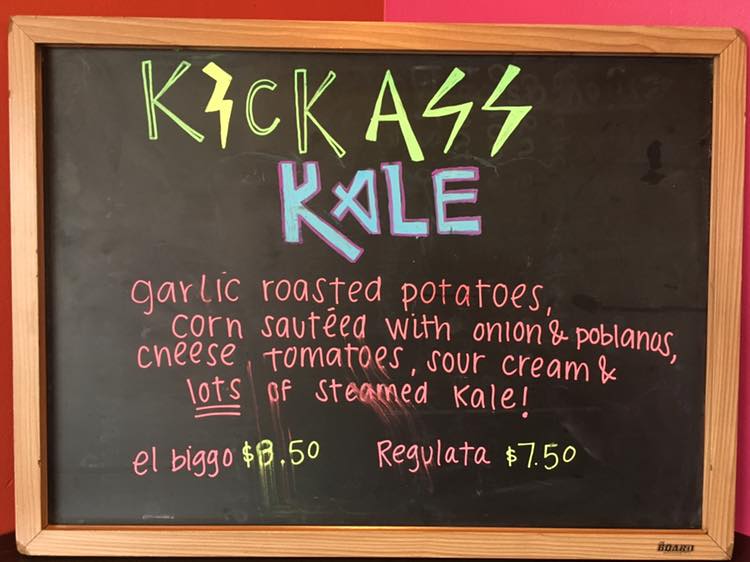 KICK ASS
KALE
garlic roasted potatoes,
corn sautéed with onion & poblanos,
cheese, tomatoes, sour cream &
lots of steamed kale!
el biggo $8.50 Regulata $7.50
BOARD